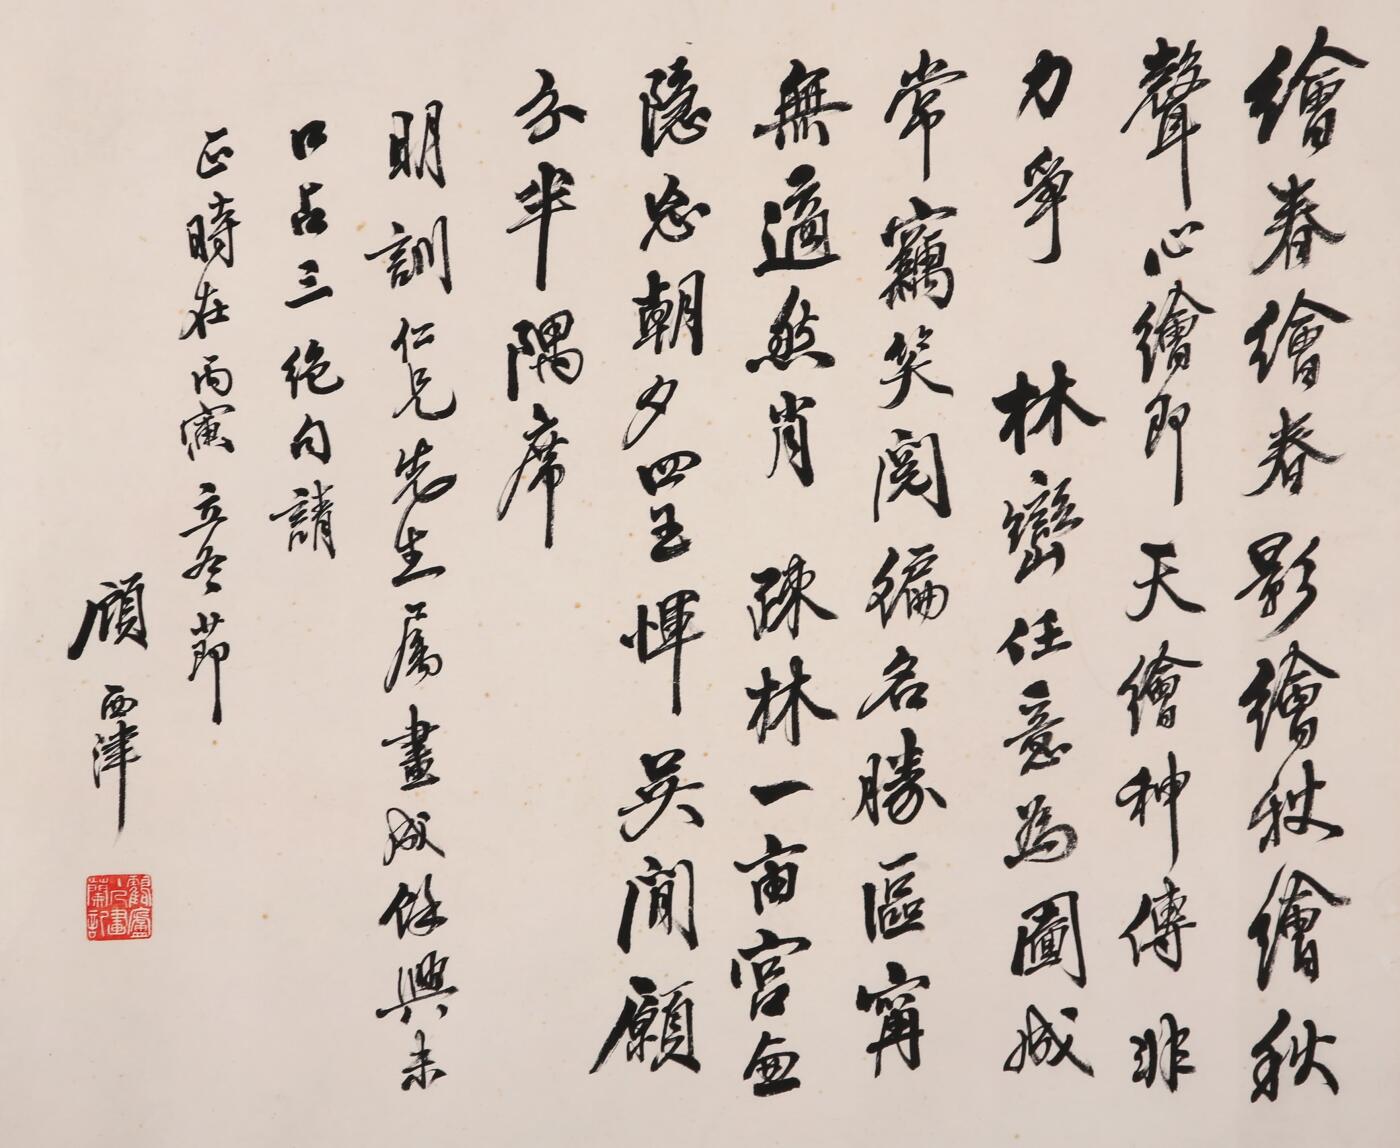 繪春繪春影繪秋繪秋
聲心繪即天繪神傳非
力爭 林巒任意為圖成
常竊笑閱徧名勝區寧
無適然肖 疎林一亩宮無
隱忩朝夕四王惲吳間願
分半隅席
明訓仁兄先生属畫成餘興未
口占三絶句請
正時在丙寅立冬節
顧西津
鶴廬
人畫
蘭記